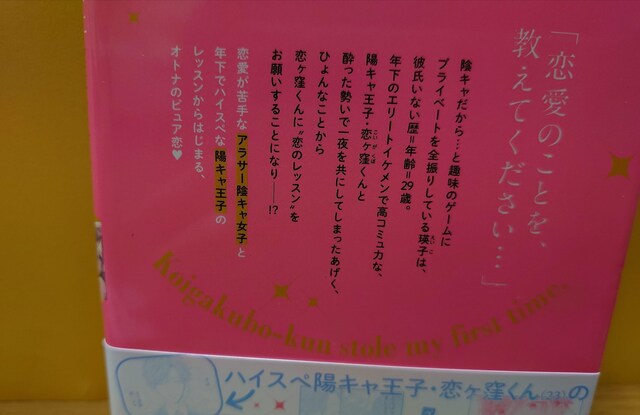 「恋愛のことを、
教えてください…」
陰キャだから…と趣味のゲームに
プライベートを全振りしている瑛子は、
えいこ
彼氏いない歴=年齢=29歳。
年下のエリートイケメンで高コミュ力な、
陽キャ王子・恋ヶ窪くんと
こいがくぼ
酔った勢いで一夜を共にしてしまったあげく、
ひょんなことから
恋ヶ窪くんに"恋のレッスン"を
お願いすることになり──!?
恋愛が苦手なアラサー陰キャ女子と
年下でハイスペな陽キャ王子の
レッスンからはじまる、
オトナのピュア恋♥
Koigakubo-kun stole my first time.
ハイスペ陽キャ王子・恋ヶ窪くん(23)の